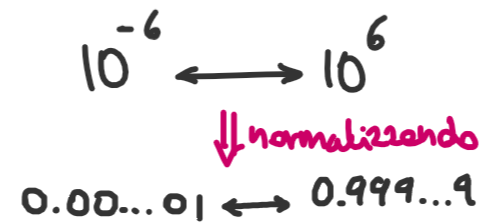 10^-6 ↔ 10^6
⇓ normalizzando
0.00...01 ↔ 0.999...9